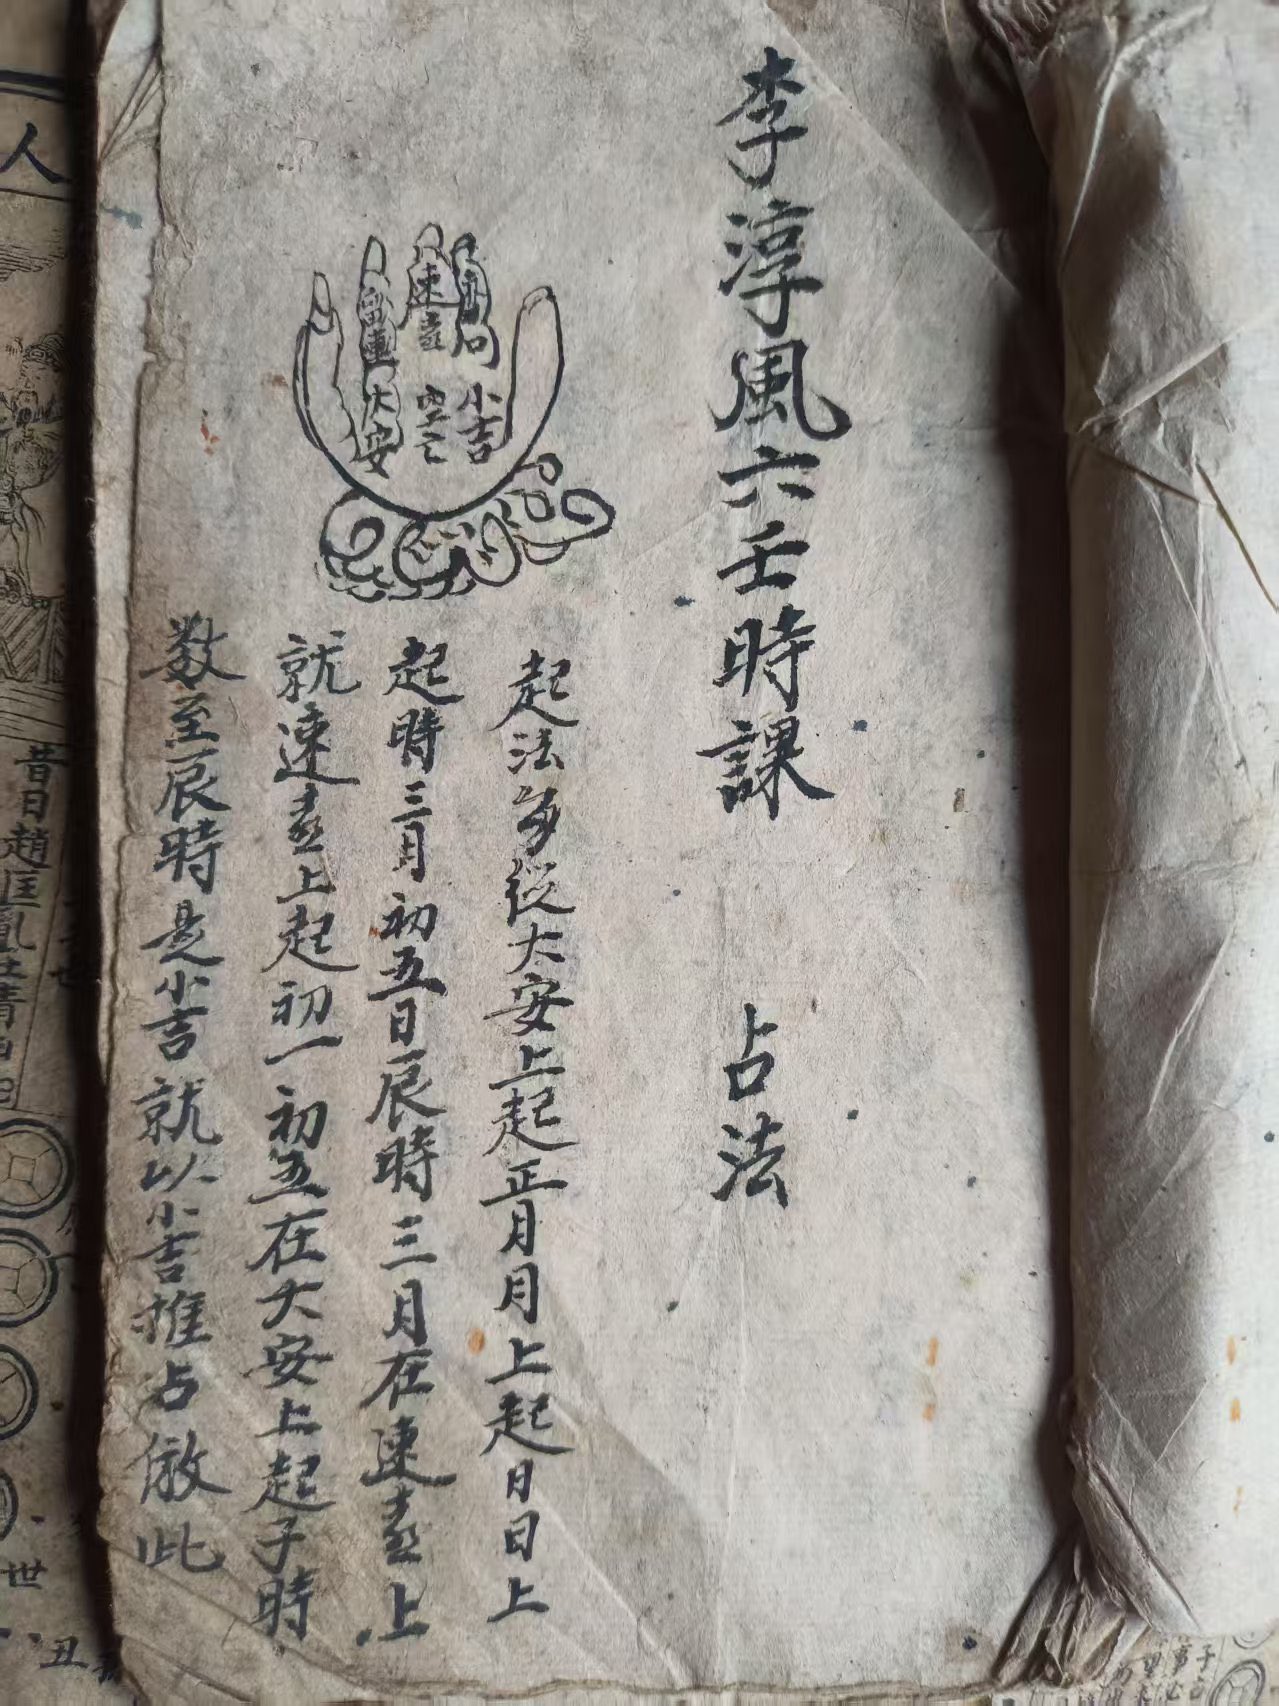 李淳風六壬時課　占法
赤口
小吉
速喜
空亡
留連
大安
起法多從大安上起正月月上起日日上
起時三月初五日辰時三月在速喜上
就速喜上起初一初五在大安上起子時
数至辰時是小吉就以小吉推占倣此
人
昔日趙匡胤
世
丑